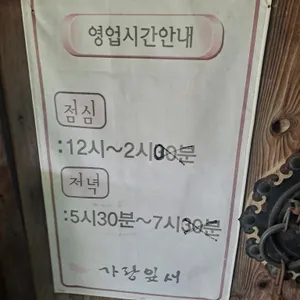 영업시간안내
점심
:12시~2시00분
저녁
:5시30분~7시30분
가랑잎새